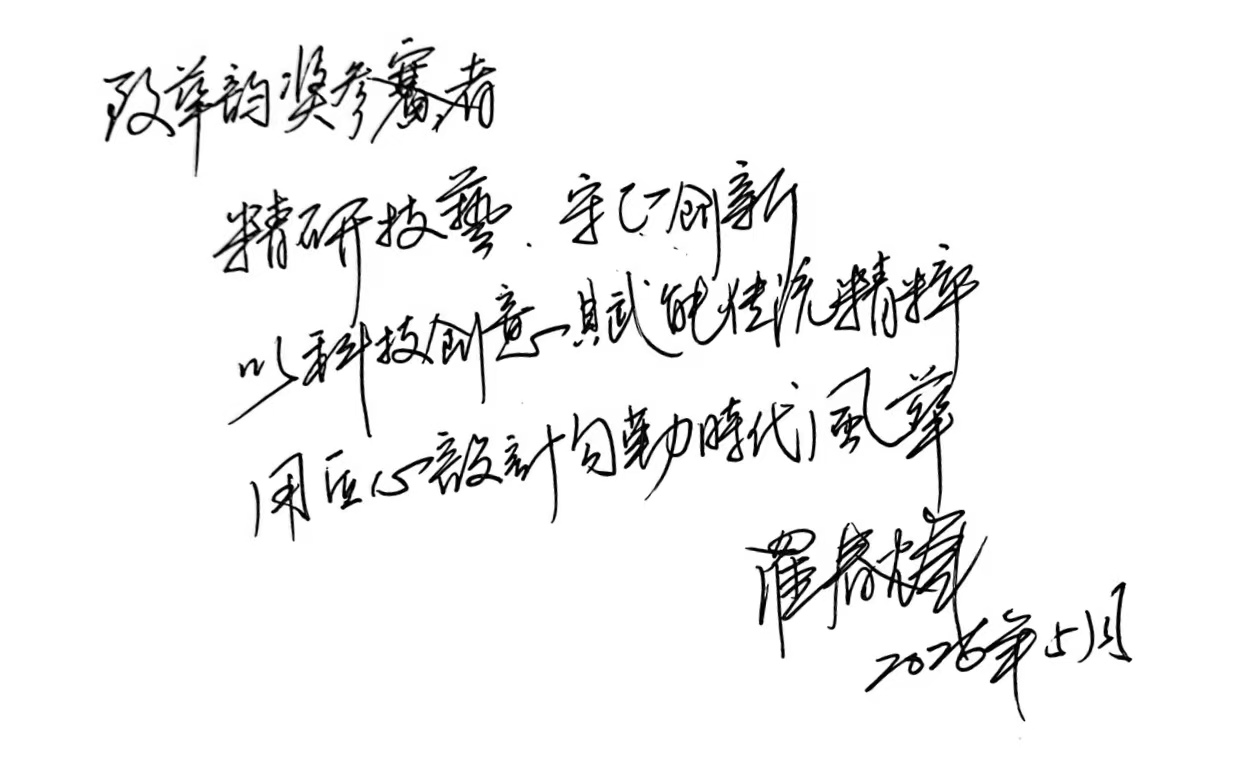 致華韵奖参賽者
精研技藝、守正創新
以科技創意賦能传统精粹
用匠心設計勾勒時代風華
羅春輝
2026年5月